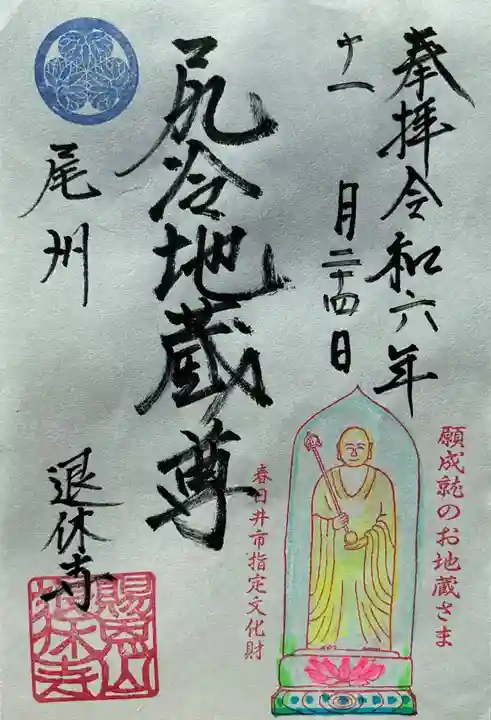 奉拝令和六年
十一月二十四日
願成就のお地蔵さま
春日井市指定文化財
尻冷地蔵尊
尾州
退休寺
賜恩山
退休寺